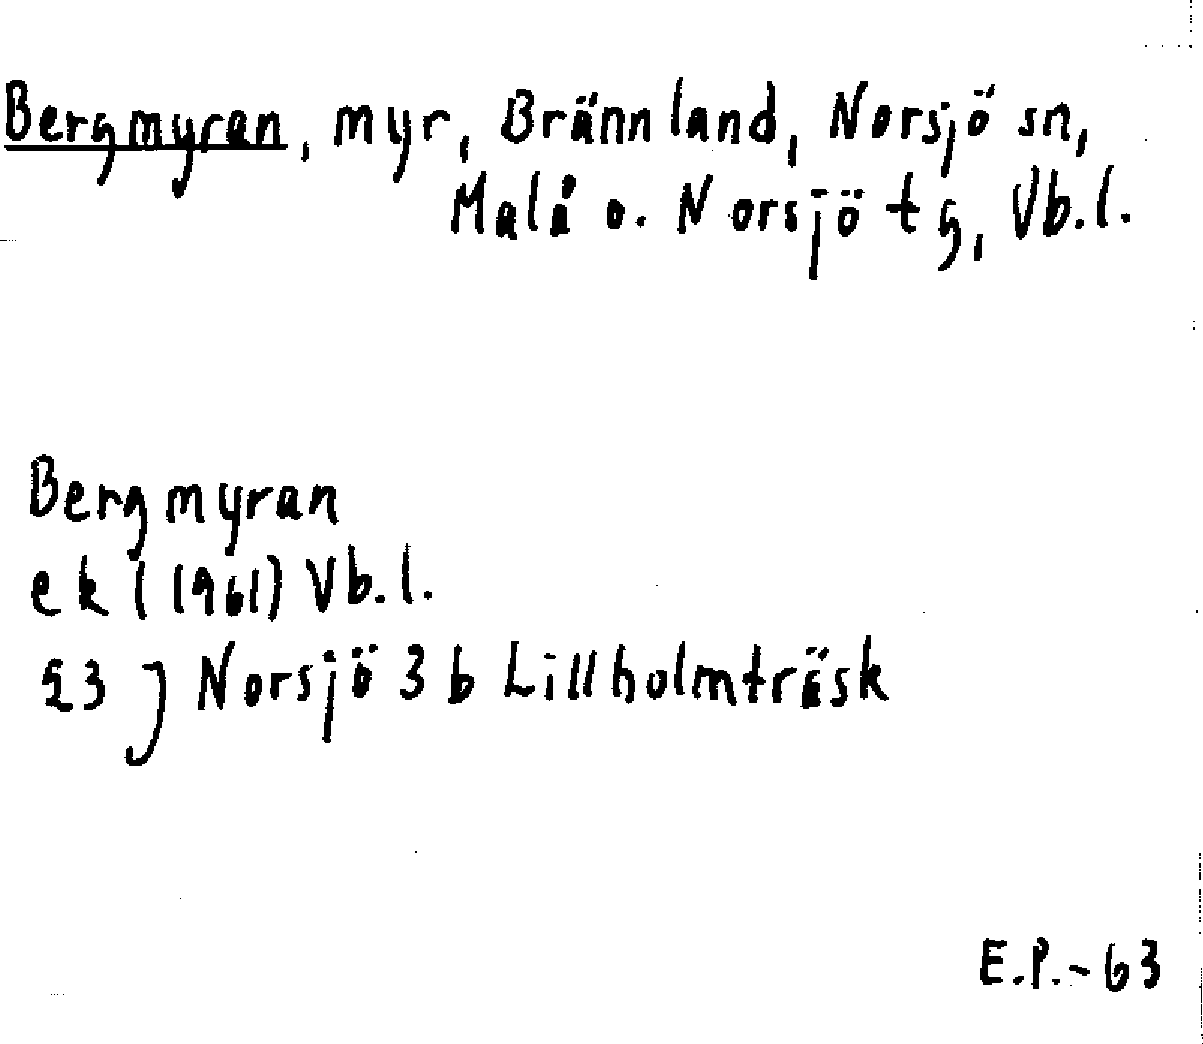 Bergmyran, myr, Brännland, Norsjö sn,
Malå o. Norsjö tg, Vb.l.
Bergmyran
ek (1961) Vb.l.
23 J Norsjö 3 b Lillholmträsk
E.P.-63